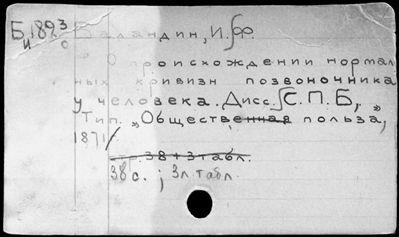 Б.1893 Баландин, И.Ф.
и о
О происхождении нормал
ных кривизн позвоночника
у человека. Дисс. С.П.Б,
Тип. „Обществ̶е̶н̶н̶а̶я̶ польза,"
1871/
с̶т̶р̶.̶3̶8̶+̶3̶т̶а̶б̶л̶.̶
38 с. ; 3л табл.